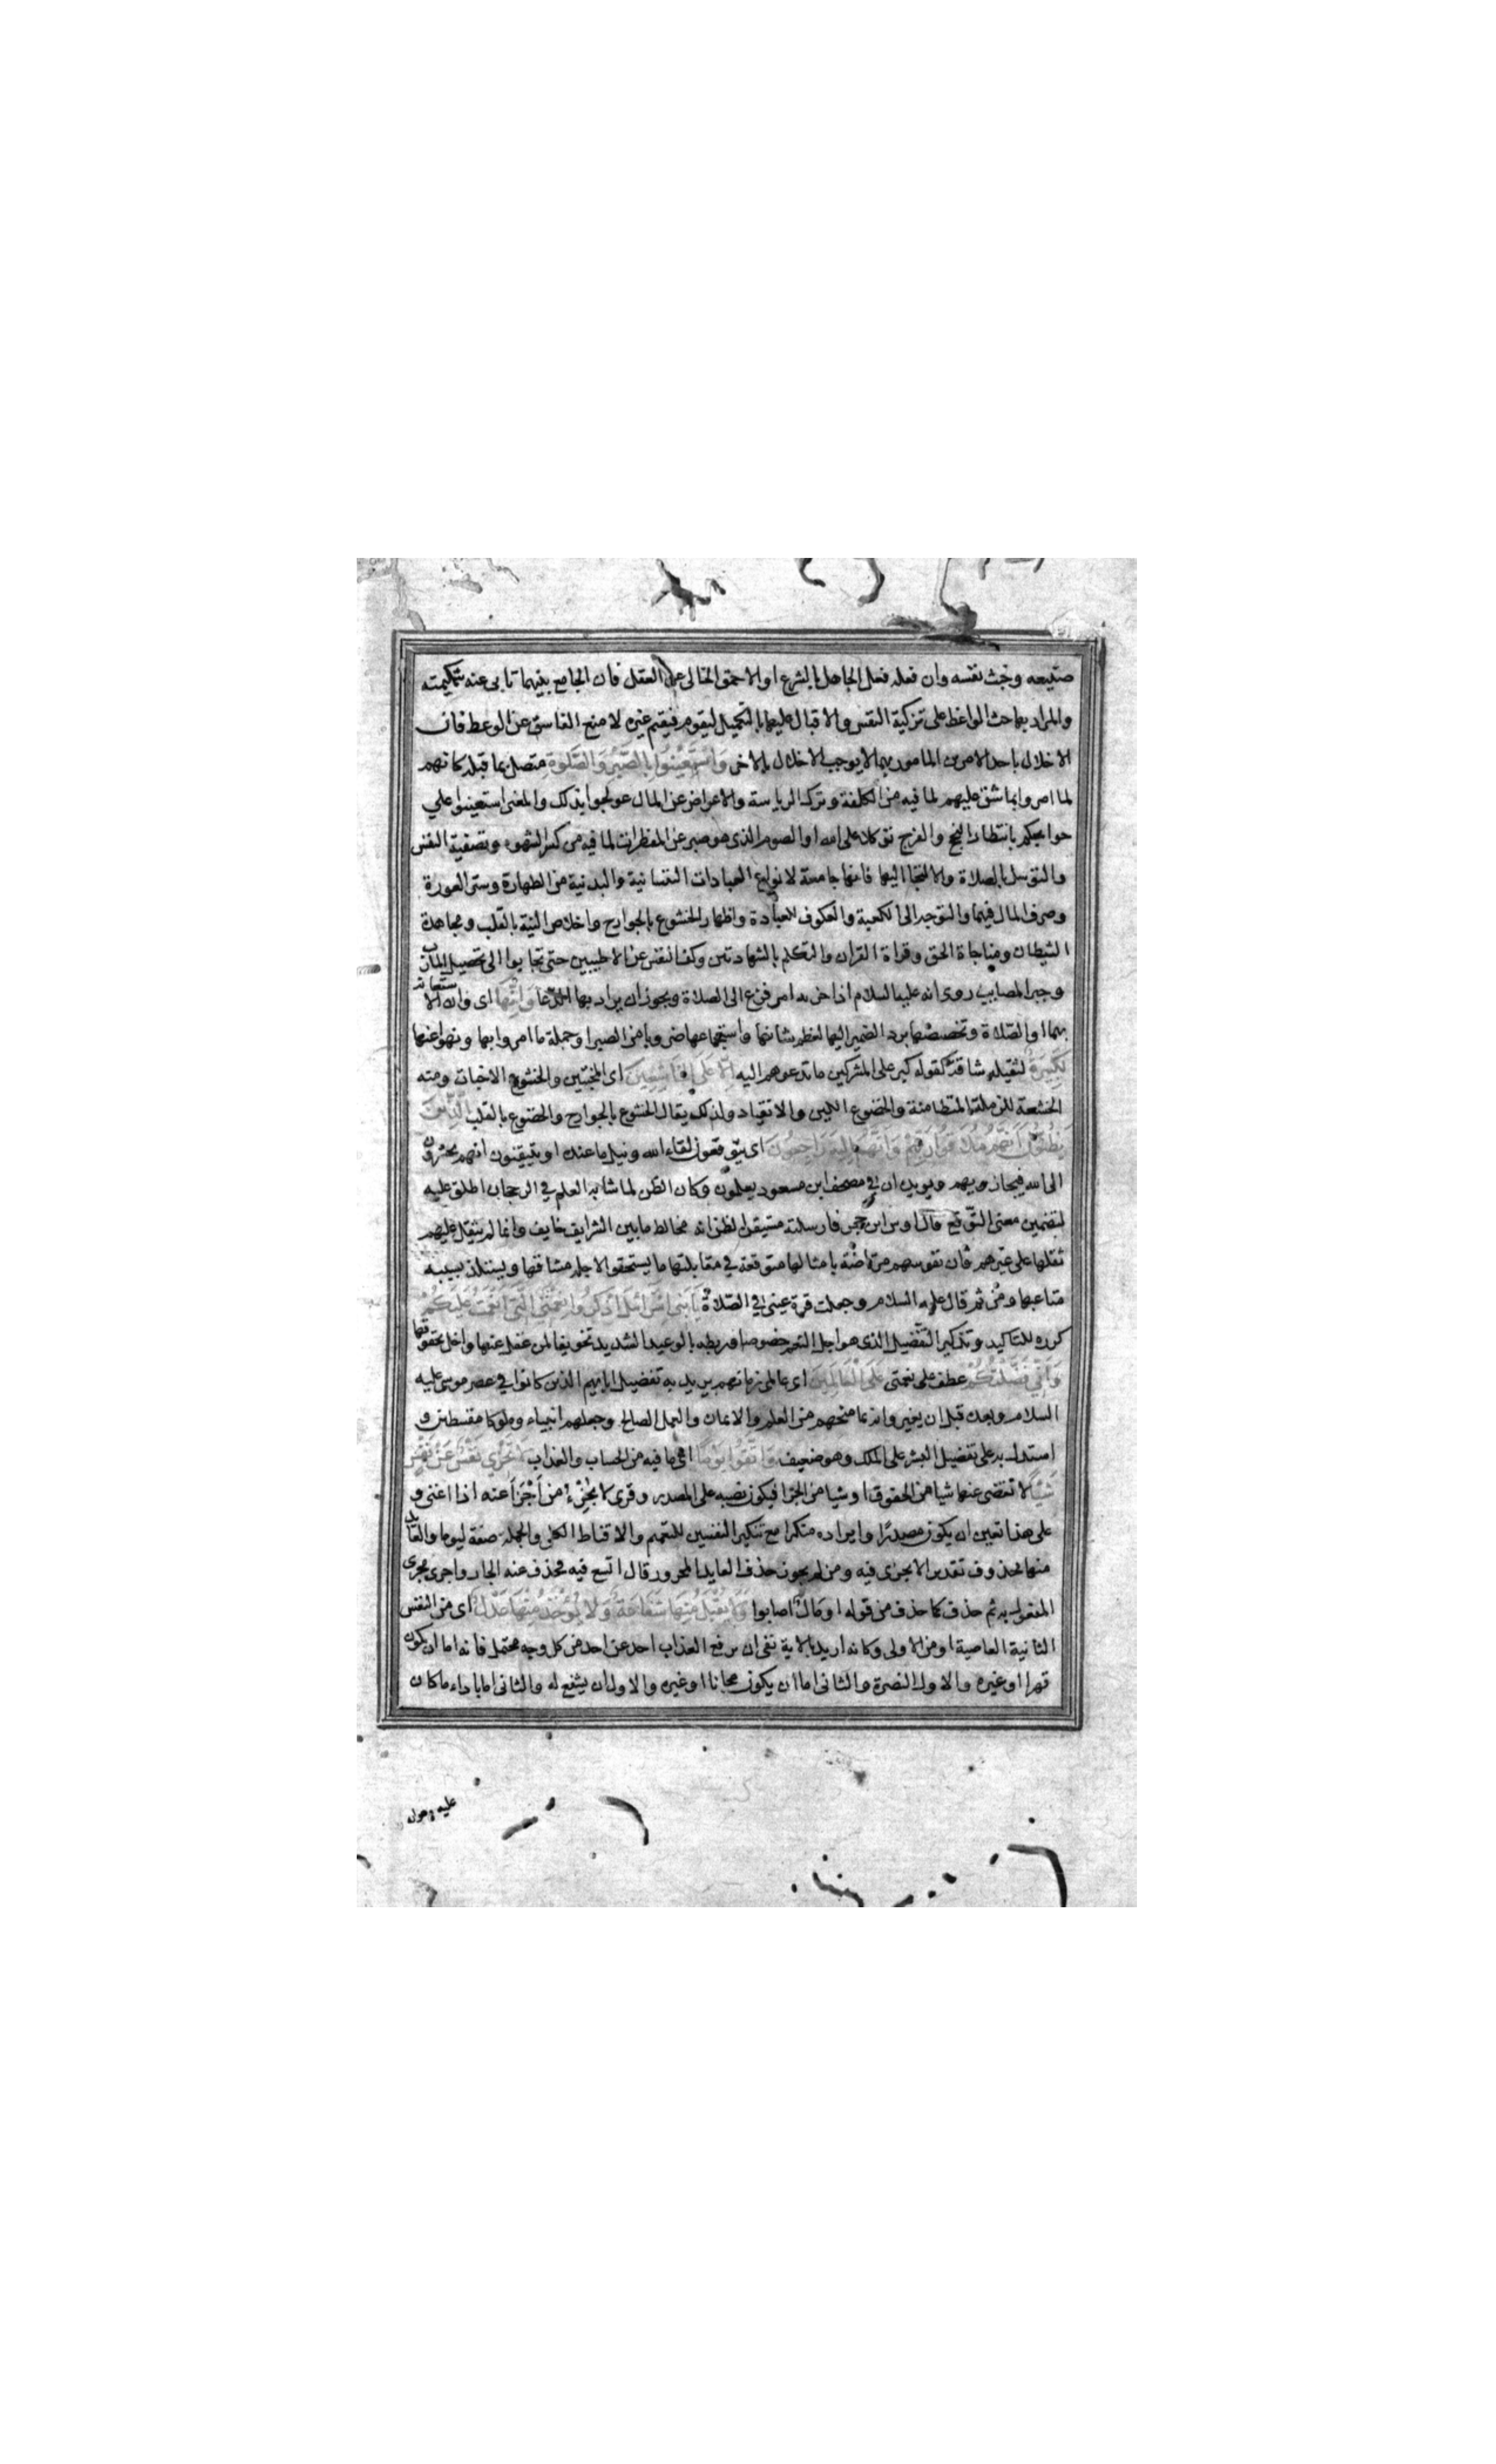 صنيعه وخبث نفسه وان فعله فعل الجاهل بالشرع او الاحمق الخالى عن العقل فان الجامع بينهما تابى عنه شكيمته
والمراد بها حث الواعظ على تزكية النفس والاقبال عليها بالتكميل ليقوم فيقيم غيره لا منع الفاسق عن الوعظ فان
الاخلال باحد الامرين المامور بهما لا يوجب الاخلال بالاخر وَاسْتَعِينُوا بِالصَّبْرِ وَالصَّلٰوةِ متصل بما قبله كانهم
لما امروا بما شق عليهم لما فيه من الكلفة وترك الرياسة والاعراض عن المال عولجوا بذلك والمعنى استعينوا علي
حوايجكم بانتظار النجح والفرج توكلا على الله او الصوم الذى هو صبر عن المفطرات لما فيه من كسر الشهوة وتصفية النفس
والتوسل بالصلاة والالتجا اليها فانها جامعة لانواع العبادات النفسانية والبدنية من الطهارة وستر العورة
وصرف المال فيهما والتوجه الى الكعبة والعكوف للعبادة واظهار الخشوع بالجوارح واخلاص النية بالقلب ومجاهدة
الشيطان ومناجاة الحق وقراة القران والتكلم بالشهادتين وكف النفس عن الاطيبين حتى تجابوا الى تحصيل المآرب
وجبر المصايب روى انه عليه السلام اذا حزبه امر فزع الى الصلاة ويجوز ان يراد بها الدعا وَاِنَّهَا اى وان الاستعانة
بهما او الصلاة وتخصيصها برد الضمير اليها لعظم شانها واستجماعها ضروبا من الصبر او جملة ما امروا بها ونهوا عنها
لَكَبِيرَةٌ لثقيلة شاقة كقوله كبر على المشركين ما تدعوهم اليه اِلَّا عَلَى الْخَاشِعِينَ اى المخبتين والخشوع الاخبات ومنه
الخشعة للرملة المتطامنة والخضوع اللين والانقياد ولذلك يقال الخشوع بالجوارح والخضوع بالقلب الَّذِينَ
يَظُنُّونَ اَنَّهُمْ مُلَاقُوا رَبِّهِمْ وَاَنَّهُمْ اِلَيْهِ رَاجِعُونَ اى يتوقعون لقاء الله ونيل ما عنده او يتيقنون انهم يحشرون
الى الله فيجازويهم ويويده ان في مصحف ابن مسعود يعلمون وكان الظن لما شابه العلم في الرجحان اطلق عليه
لتضمين معنى التوقع قال اوس ابن حجر فارسلته مستيقن الظن انه مخالط ما بين الشرايف خايف وانما لم يثقل عليهم
ثقلها على غيرهم فان نفوسهم مرتاضة بامثالها متوقعة في مقابلتها ما يستحقر لاجله مشاقها ويستلذ بسببه
متاعبها ومن ثم قال عليه السلام وجعلت قرة عينى في الصلاة يَا بَنِى اِسْرَائِلَ اذْكُرُوا نِعْمَتِىَ الَّتِى اَنْعَمْتُ عَلَيْكُمْ
كرره للتاكيد وتذكير التفضيل الذى هو اجل النعم خصوصا وربطه بالوعيد الشديد تخويفا لمن غفل عنها واخل بحقوقها
وَاَنِّي فَضَّلْتُكُمْ عطف على نعمتى عَلَى الْعَالَمِينَ اى عالمى زمانهم يريد به تفضيل ابايهم الذين كانوا في عصر موسى عليه
السلام وبعده قبل ان يغيروا بما منحهم من العلم والايمان والعمل الصالح وجعلهم انبياء وملوكا مقسطين و
استدل به على تفضيل البشر على الملك وهو ضعيف وَاتَّقُوا يَوْمًا اى ما فيه من الحساب والعذاب لَا تَجْزِي نَفْسٌ عَنْ نَفْسٍ
شَيْئًا لا تقضى عنها شيا من الحقوق او شيا من الجزا فيكون نصبه على المصدر وقرى لا تجزئ من اَجْزَأَ عنه اذا اغنى و
على هذا تعين ان يكون مصدرًا وايراده منكرا مع تنكير النفسين للتعميم والاقناط الكلى والجملة صفة ليوما والعايد
منها محذوف تقديره لا تجزى فيه ومن لم يجوز حذف العايد المجرور قال اتسع فيه فحذف عنه الجار واجرى مجرى
المفعول به ثم حذف كما حذف من قوله او مال اصابوا وَلَا يُقْبَلُ مِنْهَا شَفَاعَةٌ وَلَا يُؤْخَذُ مِنْهَا عَدْلٌ اى من النفس
الثانية العاصية او من الاولى وكانه اريد بالاية نفى ان يرفع العذاب احد عن احد من كل وجه محتمل فانه اما ان يكون
قهرا او غيره والاول النصرة والثانى اما ان يكون مجانا او غيره والاول ان يشفع له والثانى اما باداء ما كان
عليه وهو